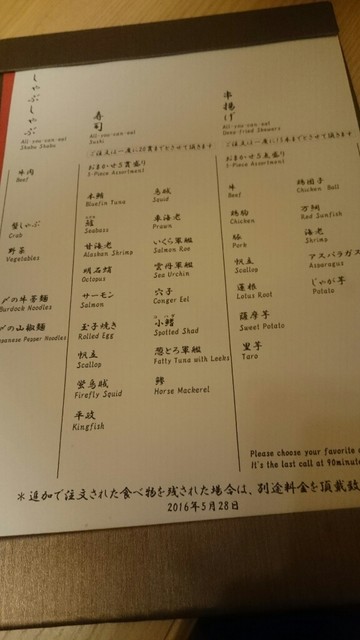 しゃぶしゃぶ
All-you-can-eat
Shabu Shabu
牛肉
Beef
蟹しゃぶ
Crab
野菜
Vegetables
〆の牛蒡麺
Burdock Noodles
〆の山椒麺
Japanese Pepper Noodles
寿司
All-you-can-eat
Sushi
ご注文は一度に20貫までとさせて頂きます
おまかせ5貫盛り
5-Piece Assortment
本鮪
Bluefin Tuna
鱸
Seabass
甘海老
Alaskan Shrimp
明石蛸
Octopus
サーモン
Salmon
玉子焼き
Rolled Egg
帆立
Scallop
蛍烏賊
Firefly Squid
平政
Kingfish
烏賊
Squid
車海老
Prawn
いくら軍艦
Salmon Roe
雲丹軍艦
Sea Urchin
穴子
Conger Eel
小鰭
Spotted Shad
葱とろ軍艦
Fatty Tuna with Leeks
鯵
Horse Mackerel
串揚げ
All-you-can-eat
Deep Fried Skewers
ご注文は一度に15本までとさせて頂きます
おまかせ5点盛り
5-Piece Assortment
牛
Beef
鶏
Chicken
豚
Pork
帆立
Scallop
蓮根
Lotus Root
薩摩芋
Sweet Potato
里芋
Taro
鶏団子
Chicken Ball
Red Sunfish
海老
Shrimp
アスパラガス
Asparagus
じゃが芋
Potato
Please choose your favorite
It's the last call at 90minute
＊追加で注文された食べ物を残された場合は、別途料金を頂戴致
2016年5月28日